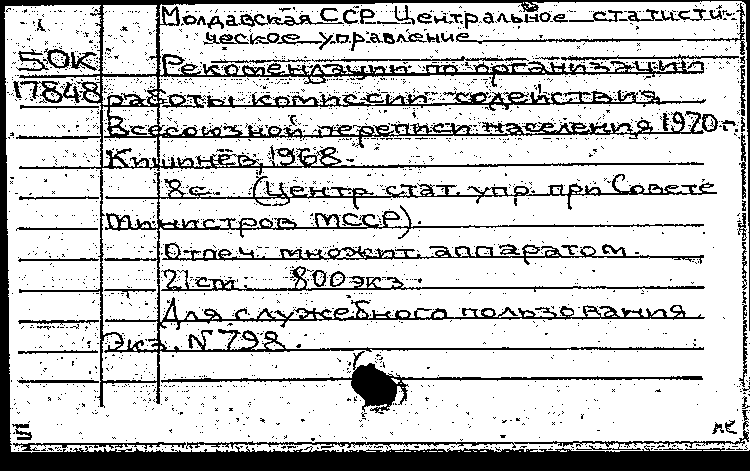 Молдавская ССР. Центральное статисти-
ческое управление.
50К Рекомендации по организации
17848 работы комиссии содействия
Всесоюзной переписи населения 1970 г.
Кишинев, 1968.
8с. (Центр. стат. упр. при Совете
министров МССР).
Отпеч. множит. аппаратом.
21 см. 800 экз.
Для служебного пользования
Экз. N 798.